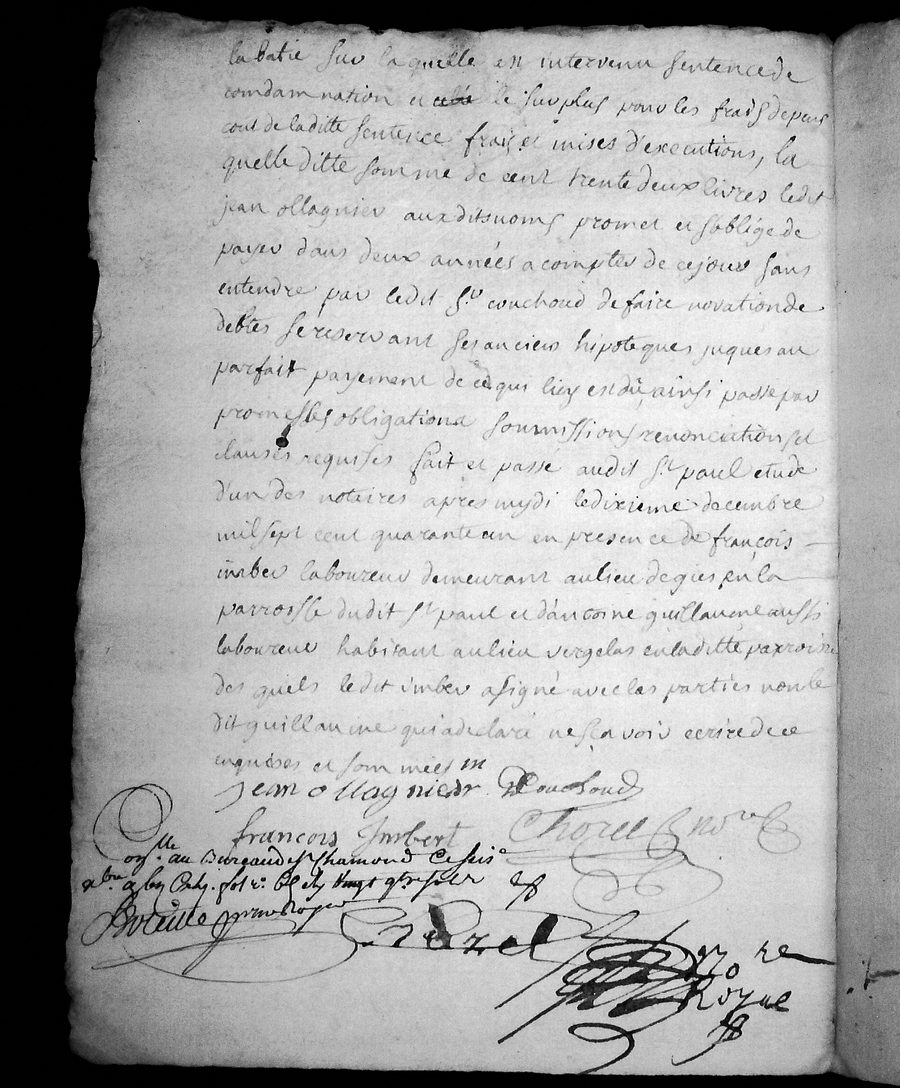 la batie sur laquelle est intervenu sentence de
comdamnation et le surplus pour les frais depens
cout de laditte sentence frais et mises d'executions, la
quelle ditte somme de cent trente deux livres ledit
jean ollagnier auxdits noms promet et soblige de
payer dans deux années a compter de ce jour sans
entendre par ledit Sr couchoud de faire novation de
debtes se reservant ses anciens hipoteques juques au
parfait payement de ce qui luy est dû, ainsi passé par
promesses obligations soumissions renonciations et
clauses requises fait et passé audit St paul etude
d'un des notaires apres mydi le dixieme decembre
mil sept cent quarante un en presence de françois
imber laboureur demeurant au lieu de en la
parroisse dudit St paul et dantoine guillaume aussi
laboureur habitant au lieu vergelas en laditte parroisse
des quels ledit imber a signé avec les parties non le
dit guillaume qui a declaré ne sçavoir ecrire de ce
enquises et sommées
jean ollagnier Couchoud
francois Imbert Chorel nore
au Bureau de St chamond ce
vingt
royal